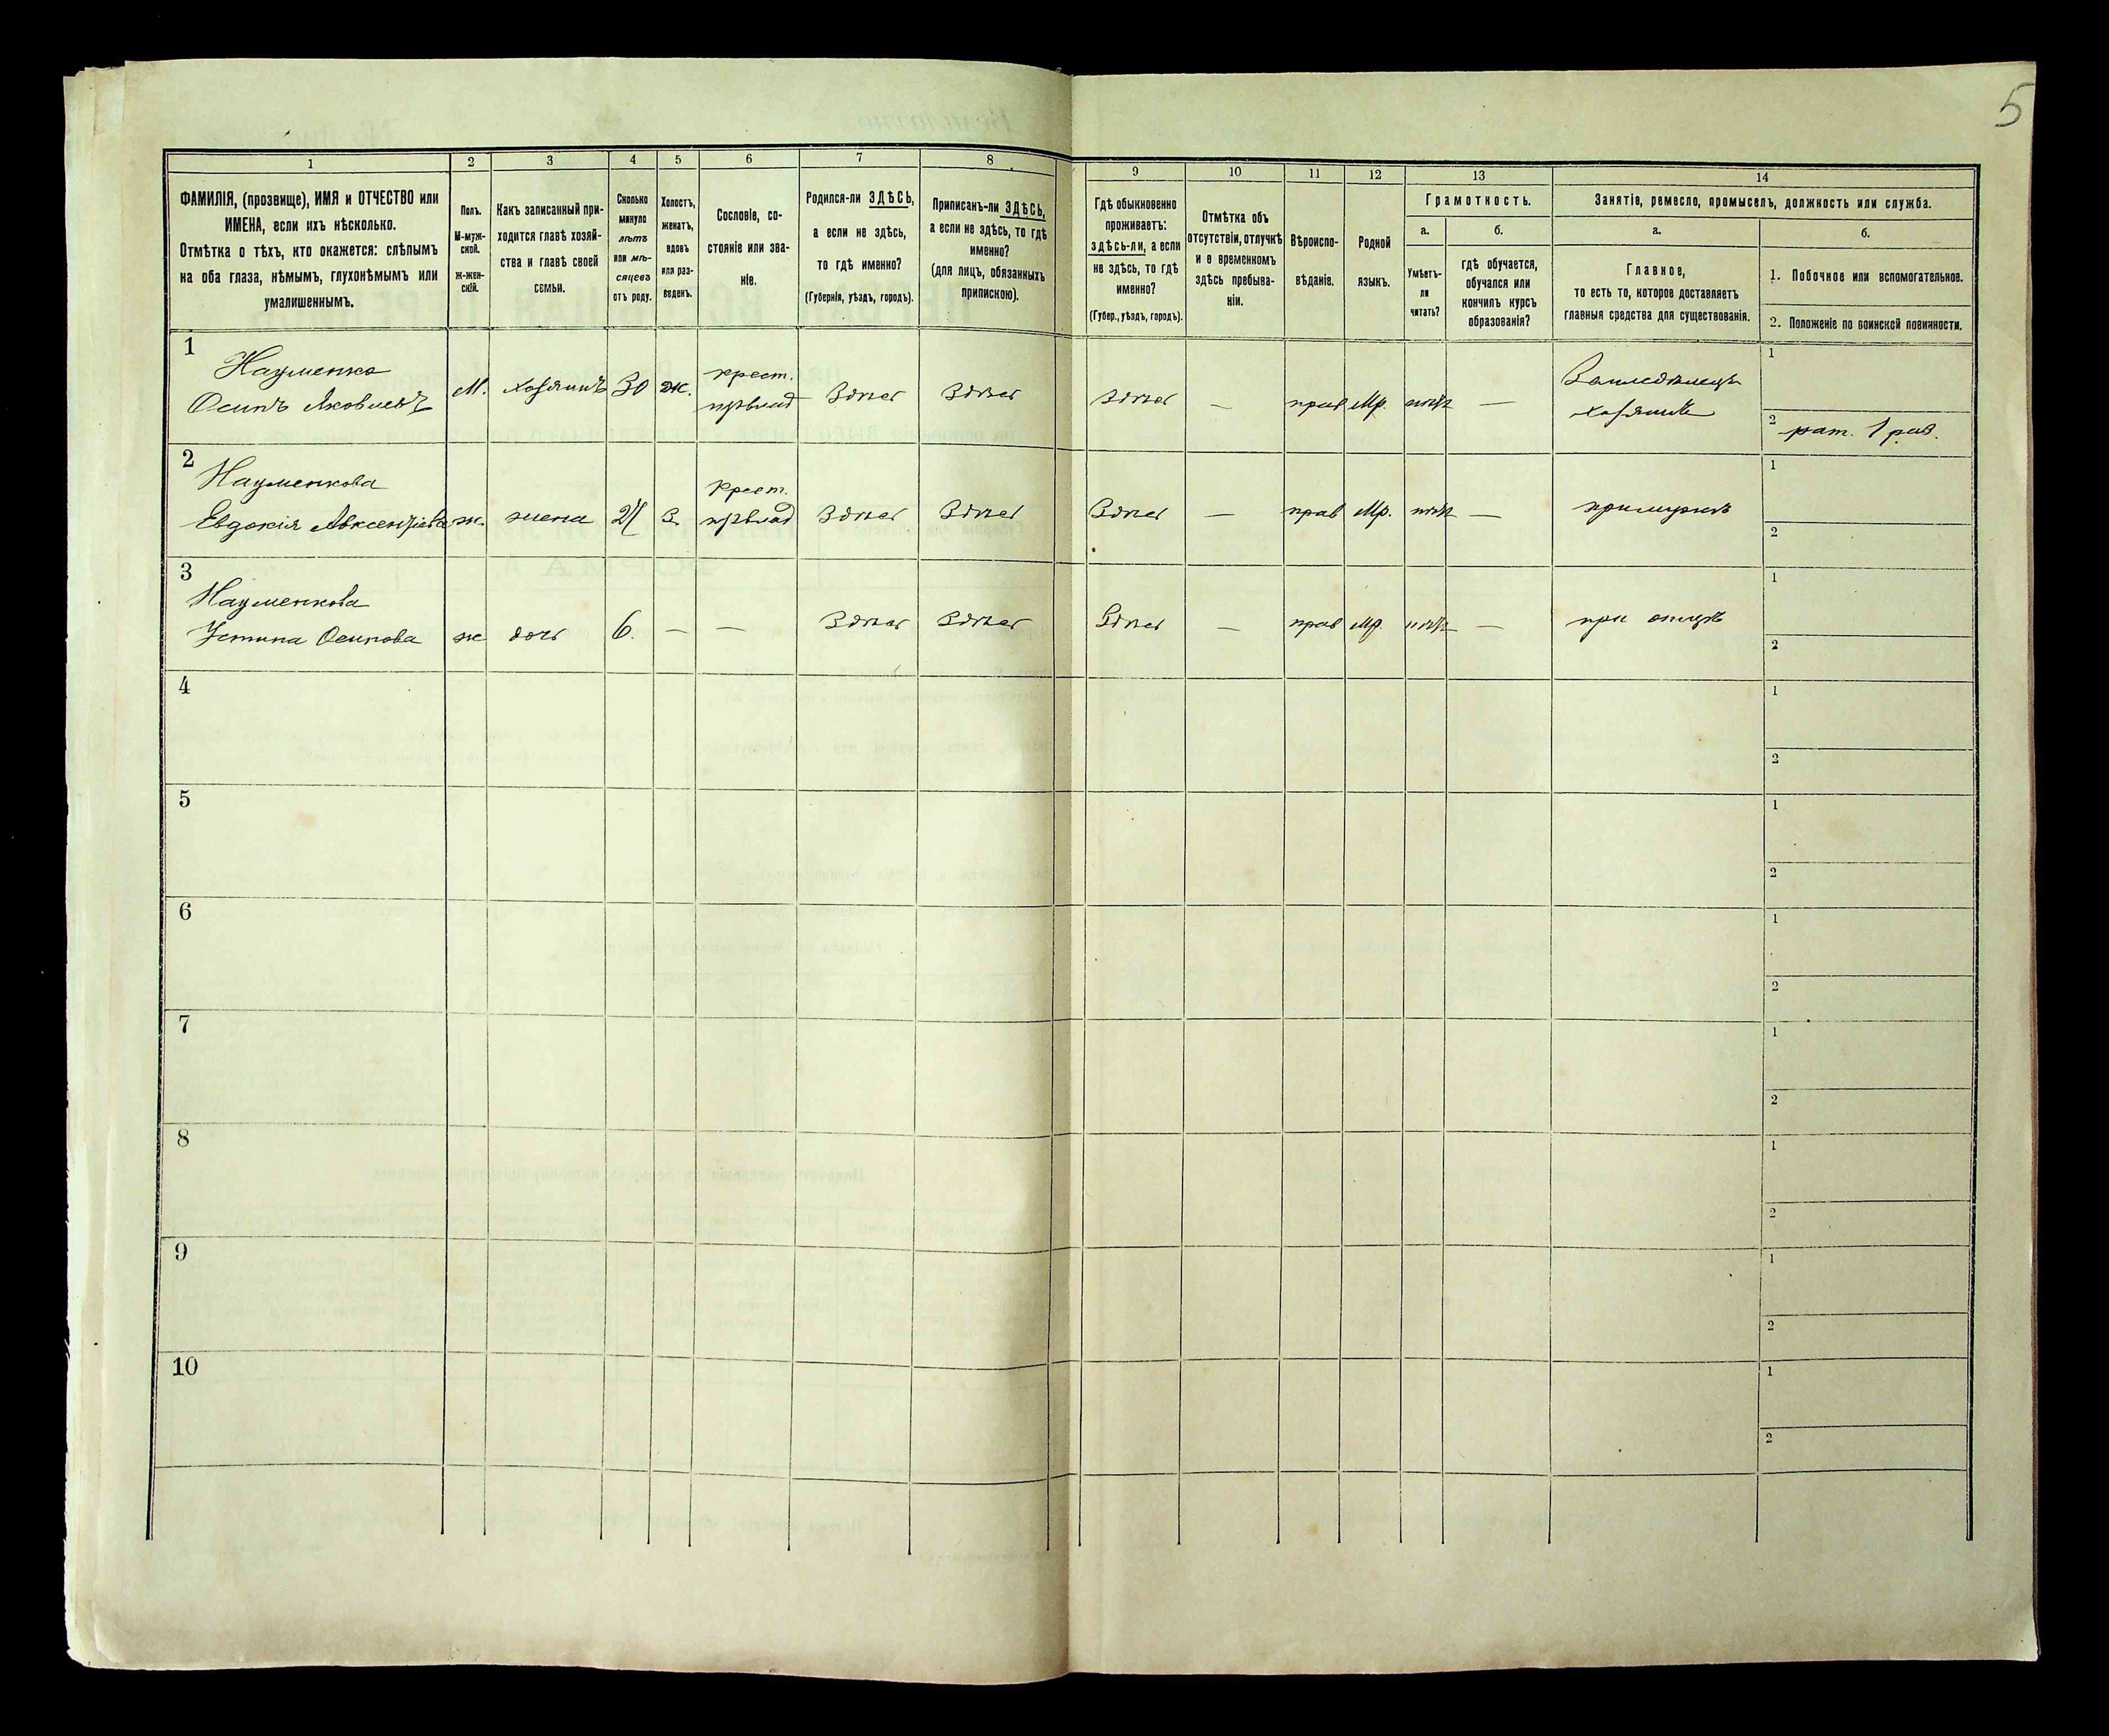 5
1 2 3 4 5 6 7 8 9 10 11 12 13 14
ФАМИЛІЯ, (прозвище), ИМЯ и ОТЧЕСТВО или
ИМЕНА, если ихъ нѣсколько.
Отмѣтка о тѣхъ, кто окажется: слѣпымъ
на оба глаза, нѣмымъ, глухонѣмымъ или
умалишеннымъ.
Полъ.
М-муж-
ской.
Ж-жен-
скій.
Какъ записанный при-
ходится главѣ хозяй-
ства и главѣ своей
семьи.
Сколько
минуло
лѣтъ
или мѣ-
сяцевъ
отъ роду.
Холостъ,
женатъ,
вдовъ
или раз-
веденъ.
Сословіе, со-
стояніе или зва-
ніе.
Родился-ли ЗДѢСЬ,
а если не здѣсь,
то гдѣ именно?
(Губернія, уѣздъ, городъ).
Приписанъ-ли ЗДѢСЬ,
а если не здѣсь, то гдѣ
именно?
(для лицъ, обязанныхъ
припискою).
Гдѣ обыкновенно
проживаетъ:
здѣсь-ли, а если
не здѣсь, то гдѣ
именно?
(Губер., уѣздъ, городъ).
Отмѣтка объ
отсутствіи, отлучкѣ
и о временномъ
здѣсь пребыва-
ніи.
Вѣроиспо-
вѣданіе.
Родной
языкъ.
Грамотность.
а.
Умѣетъ-
ли
читать?
б.
гдѣ обучается,
обучался или
кончилъ курсъ
образованія?
Занятіе, ремесло, промыселъ, должность или служба.
а.
Главное,
то есть то, которое доставляетъ
главныя средства для существованія.
б.
1. Побочное или вспомогательное.
2. Положеніе по воинской повинности.
1
Науменко
Осипъ Яковлевъ
М. хозяинъ 30 ж.
крест.
Здѣсь Здѣсь Здѣсь — прав Мр. нѣтъ —
Земледѣлецъ
хозяинъ
1
2 рат. 1 раз.
2
Науменкова
Евдокія Авксентіева
ж. жена 24 з.
крест.
Здѣсь Здѣсь Здѣсь — прав Мр. нѣтъ —
при мужѣ
1
2
3
Науменкова
Устина Осипова
ж дочь 6. — —
Здѣсь Здѣсь Здѣсь — прав Мр. нѣтъ —
при отцѣ
1
2
4
1
2
5
1
2
6
1
2
7
1
2
8
1
2
9
1
2
10
1
2